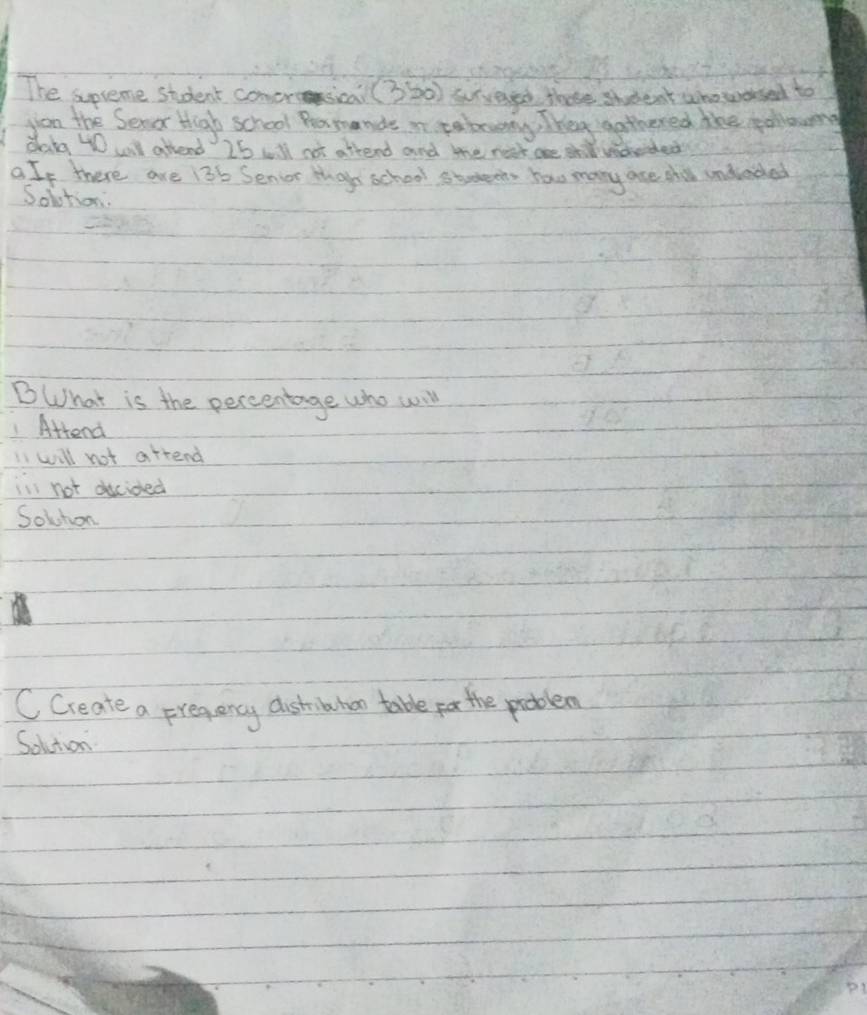 The supreme student surveyed those student who to
the Senior High School They gathered the following
data 40 will attend 25 will not attend and the rest are still
a If there are 135 Senior High school students how many are still
Solution:
B What is the percentage who will
i Attend
ii will not attend
iii not decided
Solution
C Create a Freqency distribution table for the problem
Solution